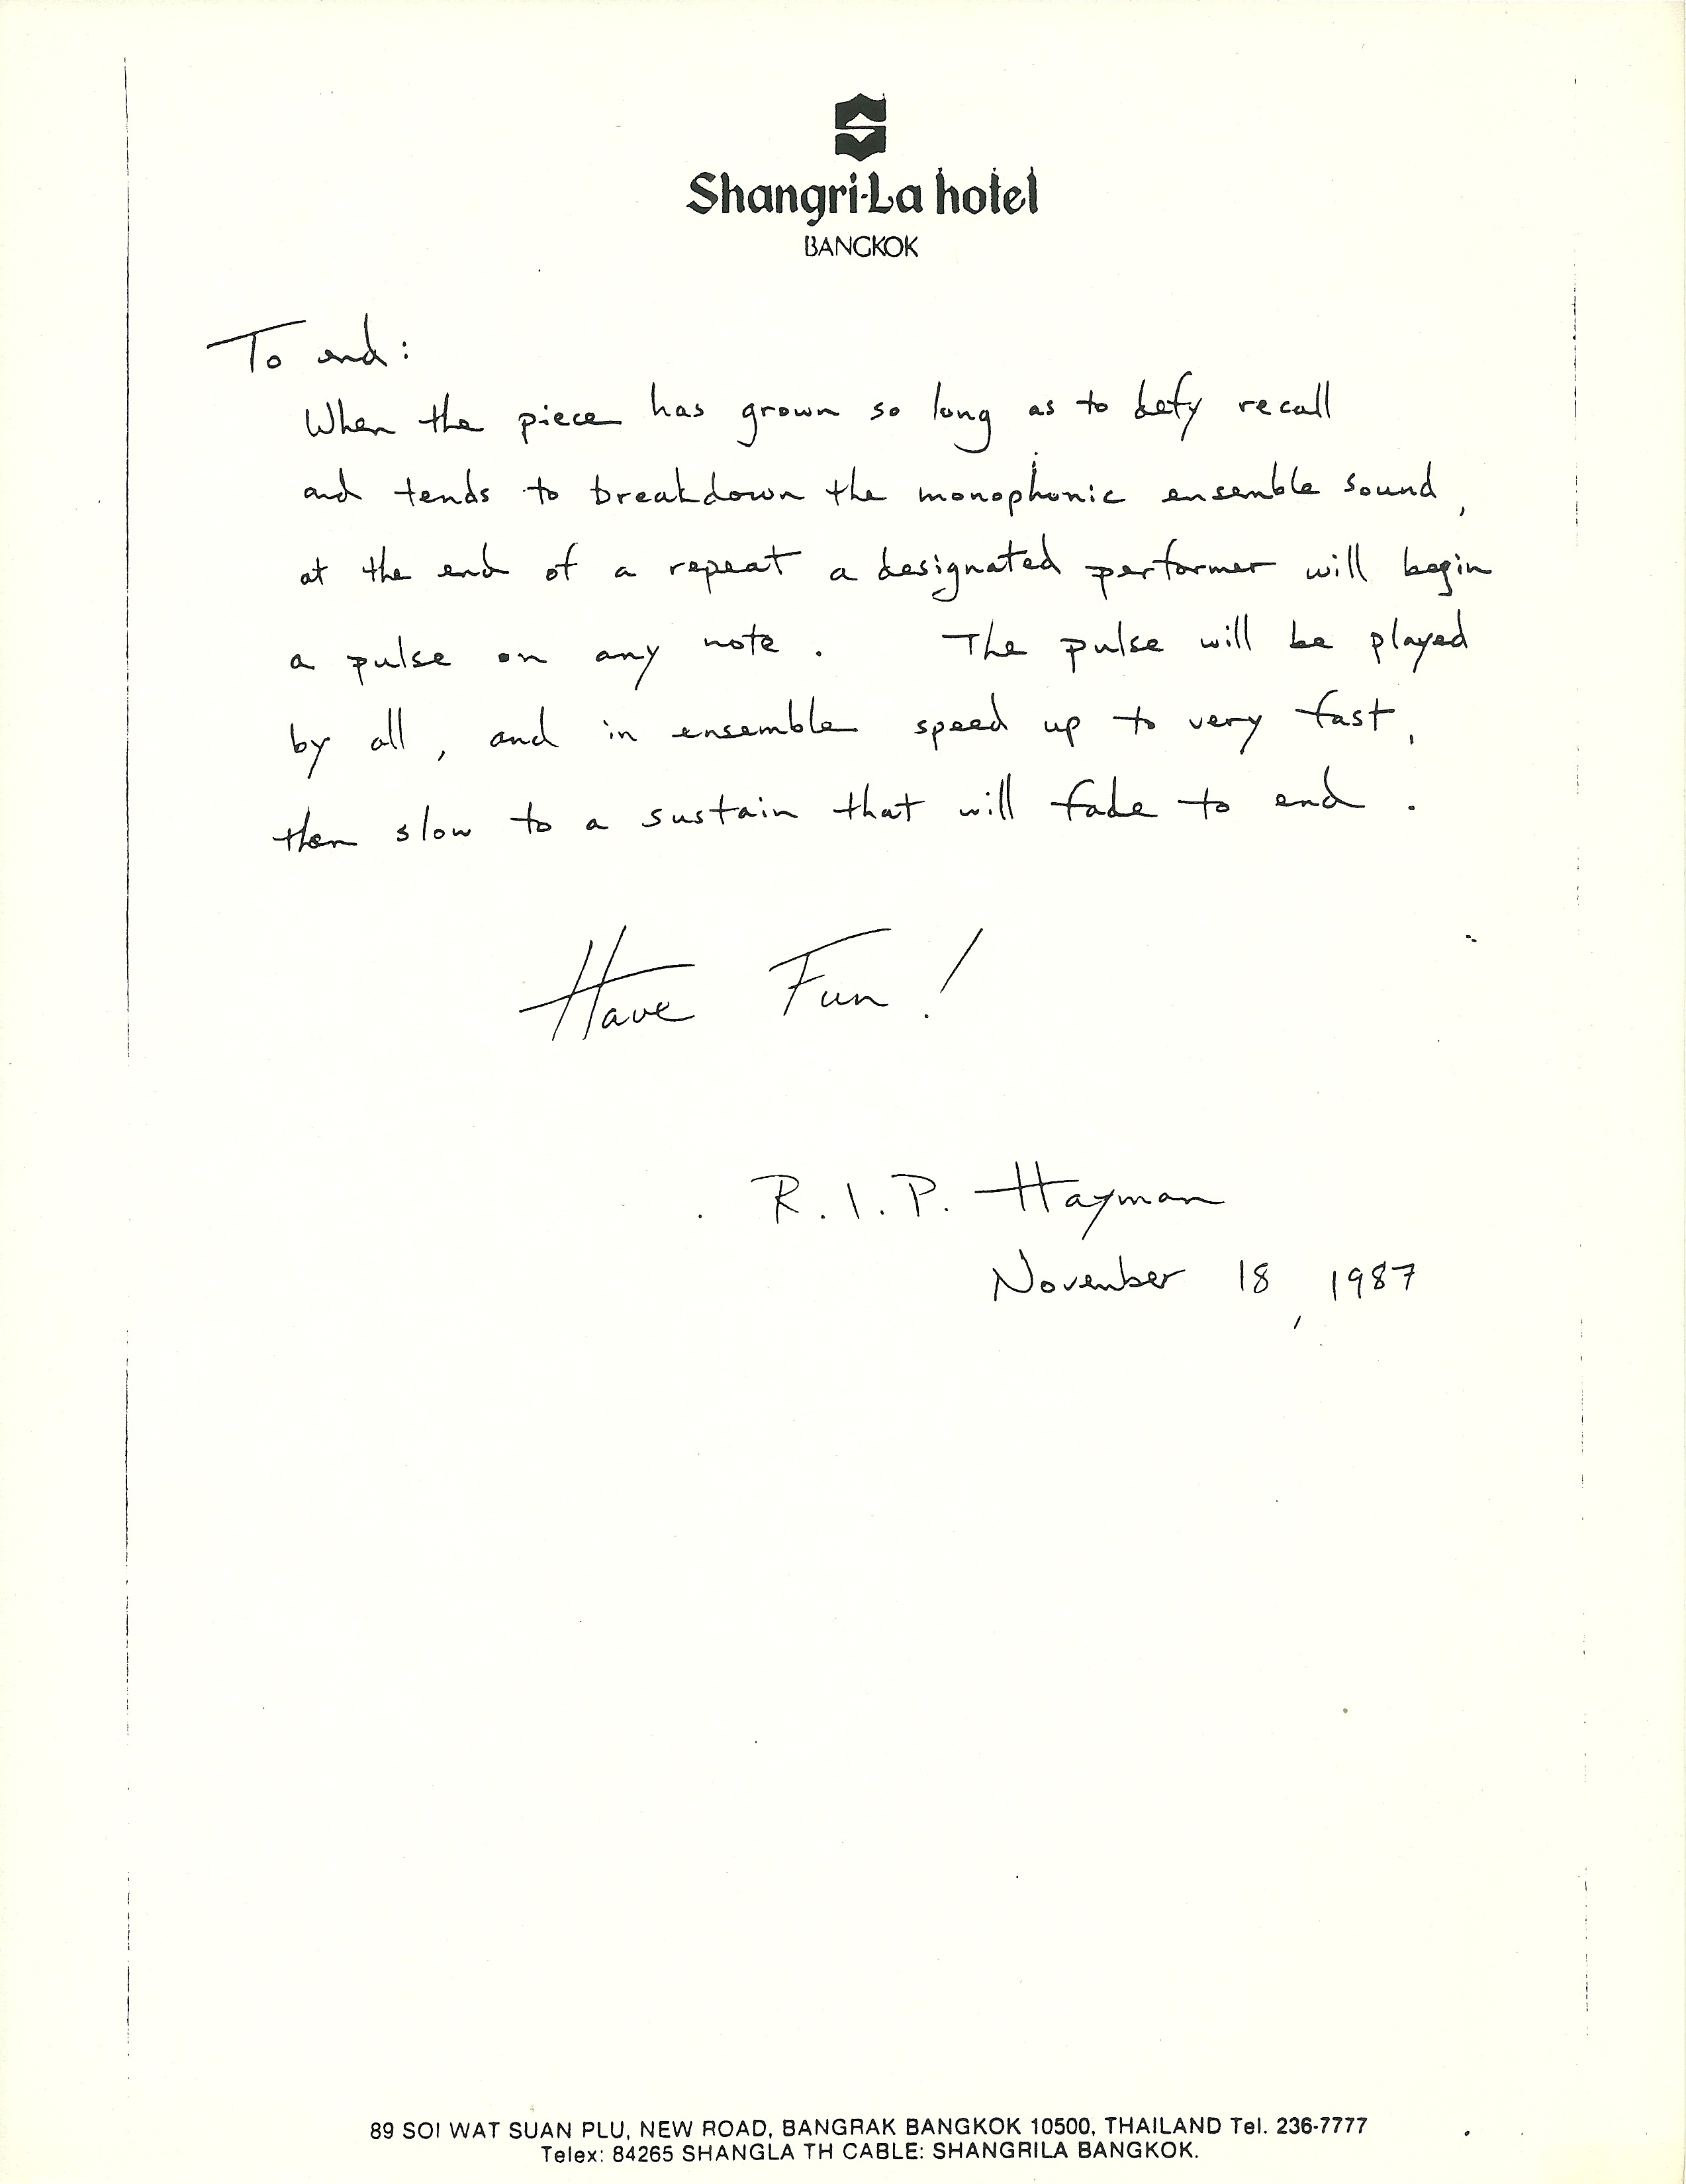 Shangri-La hotel
BANGKOK
To end:
When the piece has grown so long as to defy recall
and tends to breakdown the monophonic ensemble sound,
at the end of a repeat a designated performer will begin
a pulse on any note. The pulse will be played
by all, and in ensemble speed up to very fast,
then slow to a sustain that will fade to end.
Have Fun!
R.I.P. Hayman
November 18, 1987
89 SOI WAT SUAN PLU, NEW ROAD, BANGRAK BANGKOK 10500, THAILAND Tel. 236-7777
Telex: 84265 SHANGLA TH CABLE: SHANGRILA BANGKOK.